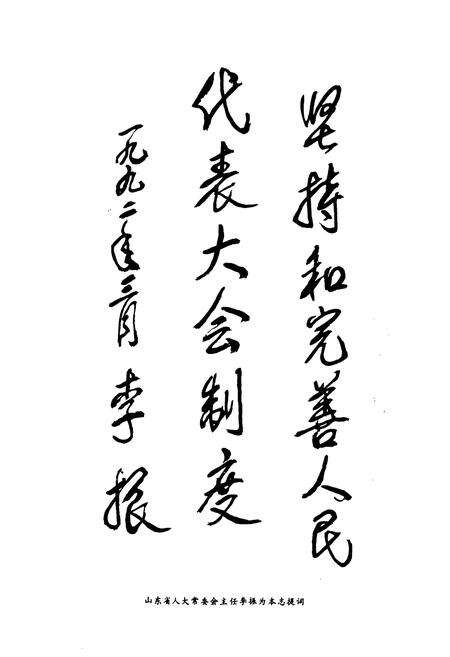 坚持和完善人民
代表大会制度
一九九二年三月 李振
山东省人大常委会主任李振为本志提词